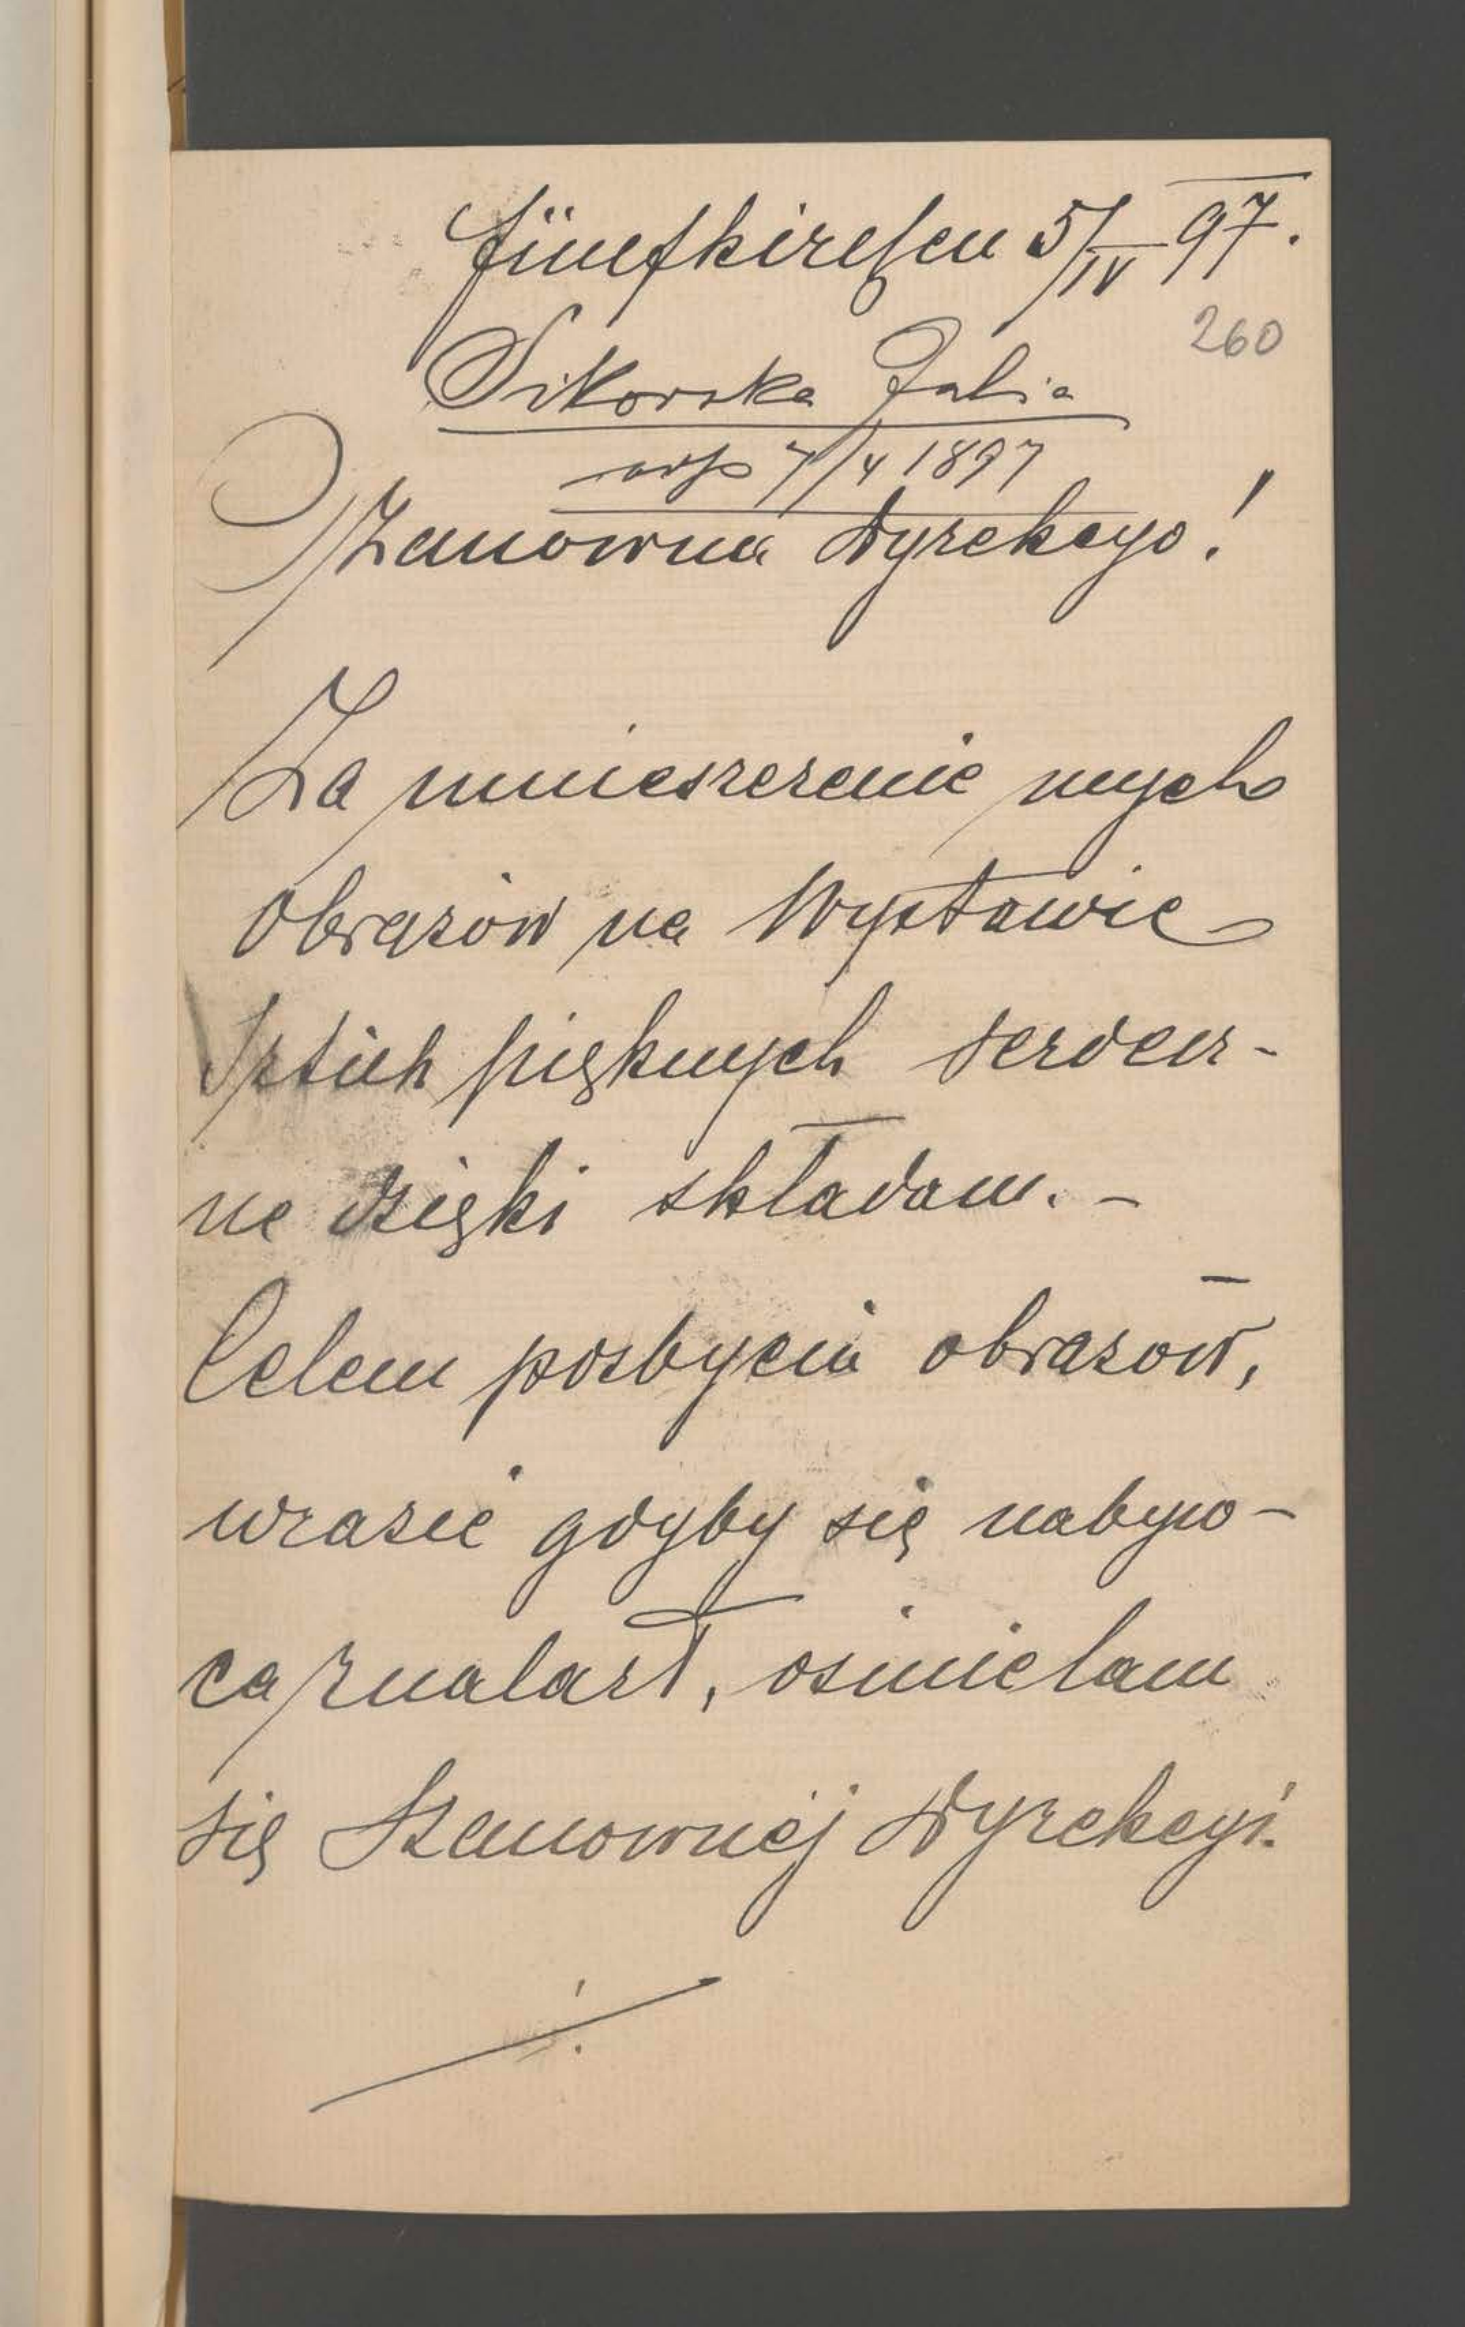 Fünfkirchen 5/IV 97.
260
Sikorska Julia
odp 7/4 1897
Szanowna Dyrekcyo!
Za umieszczenie mych
obrazów na Wystawie
Sztuk pięknych serdecz-
ne dzięki składam. -
Celem pozbycia obrazów,
wrazie gdyby się nabyw-
ca znalazł, ośmielam
się Szanownéj Dyrekcyi
./.